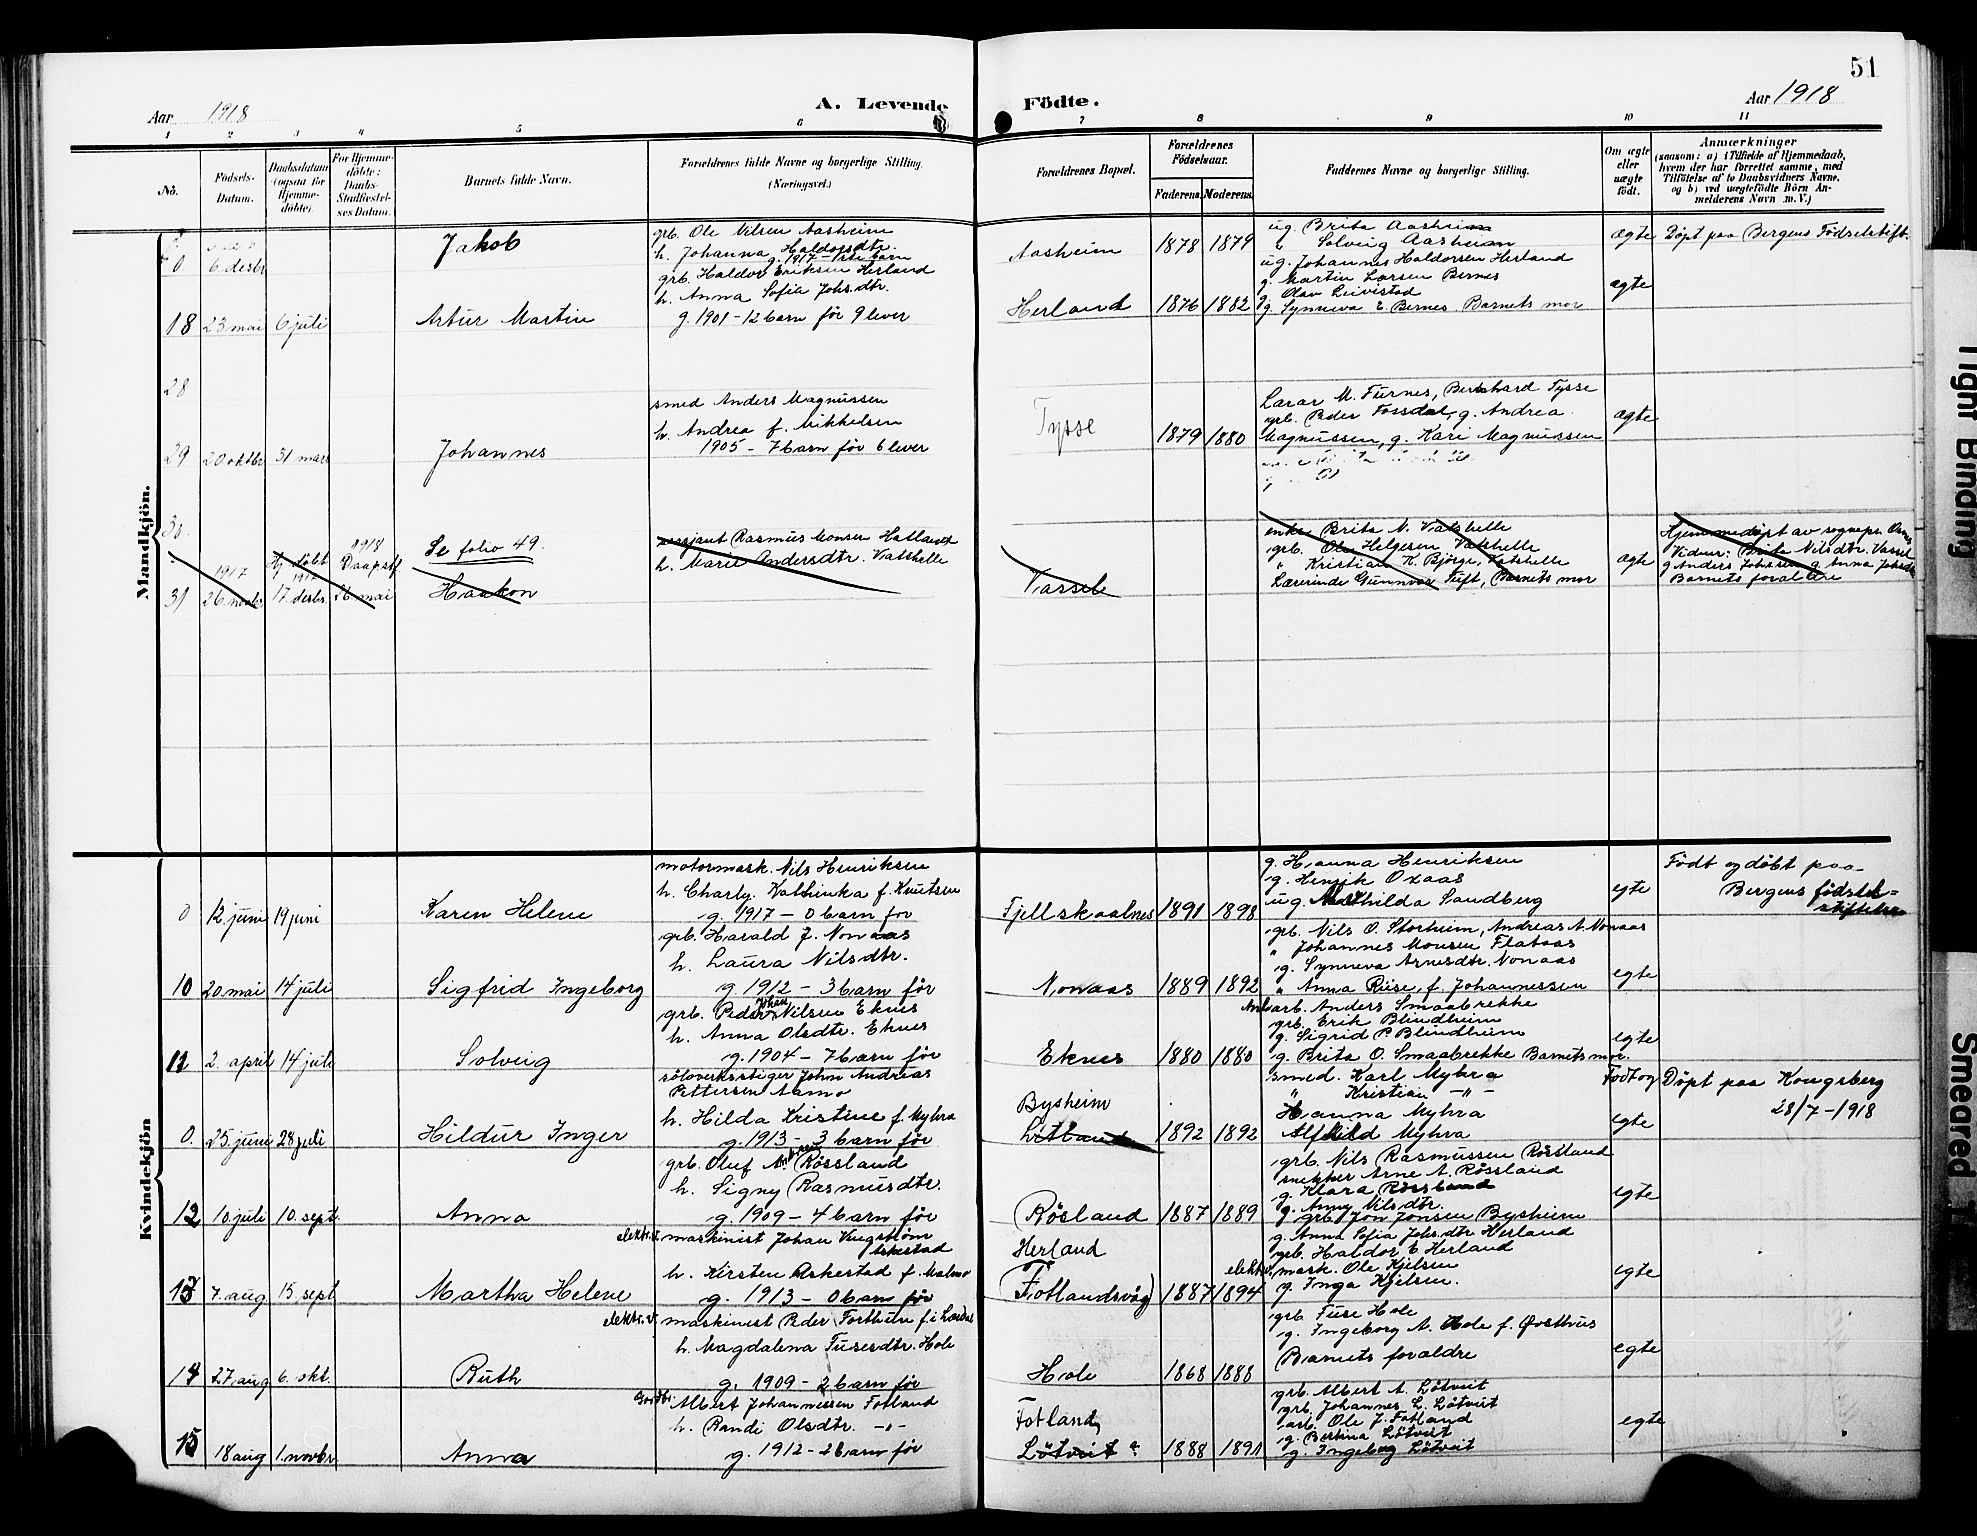 51
Aar 1918
A. Levende Födte.
Aar 1918
1 2 3 4 5 6 7 8 9 10 11
No.
Födsels-Datum.
Daabsdatum (ogsaa for Hjemmedöbte).
For Hjemmedöbte: Daabs-Stadfæstelses Datum.
Barnets fulde Navn.
Forældrenes fulde Navne og borgerlige Stilling. (Næringsvei.)
Forældrenes Bopæl.
Forældrenes Födselsaar.
Faderens. Moderens.
Faddernes Navne og borgerlige Stilling.
Om ægte eller uægte födt.
Anmærkninger
(saasom: a) i Tilfælde af Hjemmedaab, hvem der har forrettet samme, med Tilföielse af to Daabsvidners Navne, og b) ved uægtefödte Börn Anmelderens Navn m. V.)
Mandkjön.
0. 6. desbr
Jakob
grb. Ole Nilsen Aasheim
h. Johanna Haldorsdtr.
g. 1917 -
Aasheim 1878 1879
ug. Brita Aasheim
" Solveig Aasheim
ug. Johannes Haldorsen Herland
ægte
Döpt paa Bergens Födselstift.
18 23 mai 6 juli
Artur Martin
grb. Haldor Eriksen Herland
h. Anna Sofia Johs.dtr.
g. 1901 - 12 barn för 9 lever
Herland 1876 1882
g. Martin Larsen Bernes
" Olav Leivestad
g. Synneva E. Bernes. Barnets mor
ægte
28
29 20 oktbr 31 mars
Johannes
smed Anders Magnussen
h. Andrea f. Mikkelsen
1905 - 7 barn för 6 lever
Tysse 1879 1880
Lærar M. Furnes, Bernhard Tysse
grb. Peder Fossdal, g. Andrea
Magnussen, g. Kari Magnussen
ægte
30.
31 1917 26. novbr
Hj döbt 1917 17 desbr.
1918 Daapstf 26 mai
Se folio 49.
Haakon
sersjant Rasmus Monsen Hatland
h. Marie Andersdtr. Vatshelle
Vassel
enke Brita N. Vatshelle
grb. Ole Helgesen Vatshelle
" Kristian K. Björge, Vatshelle
Lærerinde Gunnvor Tuft, Barnets mor
ægte
Hjemmedöpt av sognepr.
Vidner: Brita Nilsdtr. Vassel
g Anders Johssen g Anna
Barnets forældre
Kvindekjön
0 12 juni 19 juni
Karen Helene
motormask. Nils Henriksen
h. Charly. Kathinka f. Knutsen
g. 1917 - 0 barn for
Fjellskaalnes 1891 1898
g. Hanna Henriksen
g. Henrik Oxaas
ug. Mathilda Sandberg
egte
Födt og döbt paa
Bergens födsels=
stiftelse
10 20 mai 14 juli
Sigfrid Ingeborg
grb. Harald J. Nonaas
h. Laura Nilsdtr.
g. 1912 - 3 barn för
Nonaas 1889 1892
grb. Nils O. Storheim, Andreas A. Nonaas
" Johannes Monsen Flataas
g. Synneva Arnesdtr. Nonaas
" Anna Riise, f. Johannessen
egte
11 2. april 14 juli
Solveig
grb. Peder Johan Nilsen Eknes
h. Anna Olsdtr. Eknes
g. 1904 - 7 barn för
Eknes 1880 1880
arb. Anders Smaabrekke
grb. Erik Blindheim
g. Sigrid P. Blindheim
g. Brita O. Smaabrekke Barnets mor.
egte
0. 25. juni 28 juli
Hildur Inger
sölvverksstiger John Andreas
Pettersen Aamo
h. Hilda Kristine f. Myhra
g. 1913 - 3 barn för
Bysheim
Litland 1892 1892
smed. Karl Myhra
" Kristian -"-
Hanna Myhra
Alfhild Myhra
Födt og
egte
Döpt paa Kongsberg
28/7-1918
12 10. juli 10. sept.
Anna
grb. Oluf A. Rössland
h. Signy Rasmusdtr.
g. 1909 - 4 barn för
Rösland 1887 1889
grb. Nils Rasmussen Rössland
snekker Arne A. Rössland
g. Klara Rössland
g. Anny Nilsdtr.
egte
13 7. aug 15. sept
Martha Helene
elektr. v. maskinist Johan Vingström
Askestad
h. Kirsten Askestad f. Malmo
g. 1913 - 0 barn för
Herland
(Fotlandsvåg) 1887 1894
grb Jon Jonsen Bysheim
g. Anna Sofia Johs.dtr Herland
grb. Haldor E Herland
elektr. mask. Ole Kjelsen
g. Inga Kjelsen.
egte
14 27. aug 6. okt.
Ruth
elektr. v. maskinist Peder Forthun f. i Lærdal
h. Magdalena Turesdtr. Hole
g. 1909 - 2 barn för
Hole 1868 1888
grb Ture Hole
g. Ingeborg A. Hole f. Østhus
Barnets forældre
egte
15 18 aug 1. novbr.
Anna
Gardbr. Albert Johannessen Fotland
h. Randi Olsdtr. -"-
g. 1912 - 2 barn för
Fotland,
Lötveit 1888 1891
grb. Albert A. Lötveit
grb. Johannes L. Lötveit
arb. Ole J. Fotland
g. Bertina Lötveit
g. Ingeborg Lötveit
egte
Tight Binding
Smeared